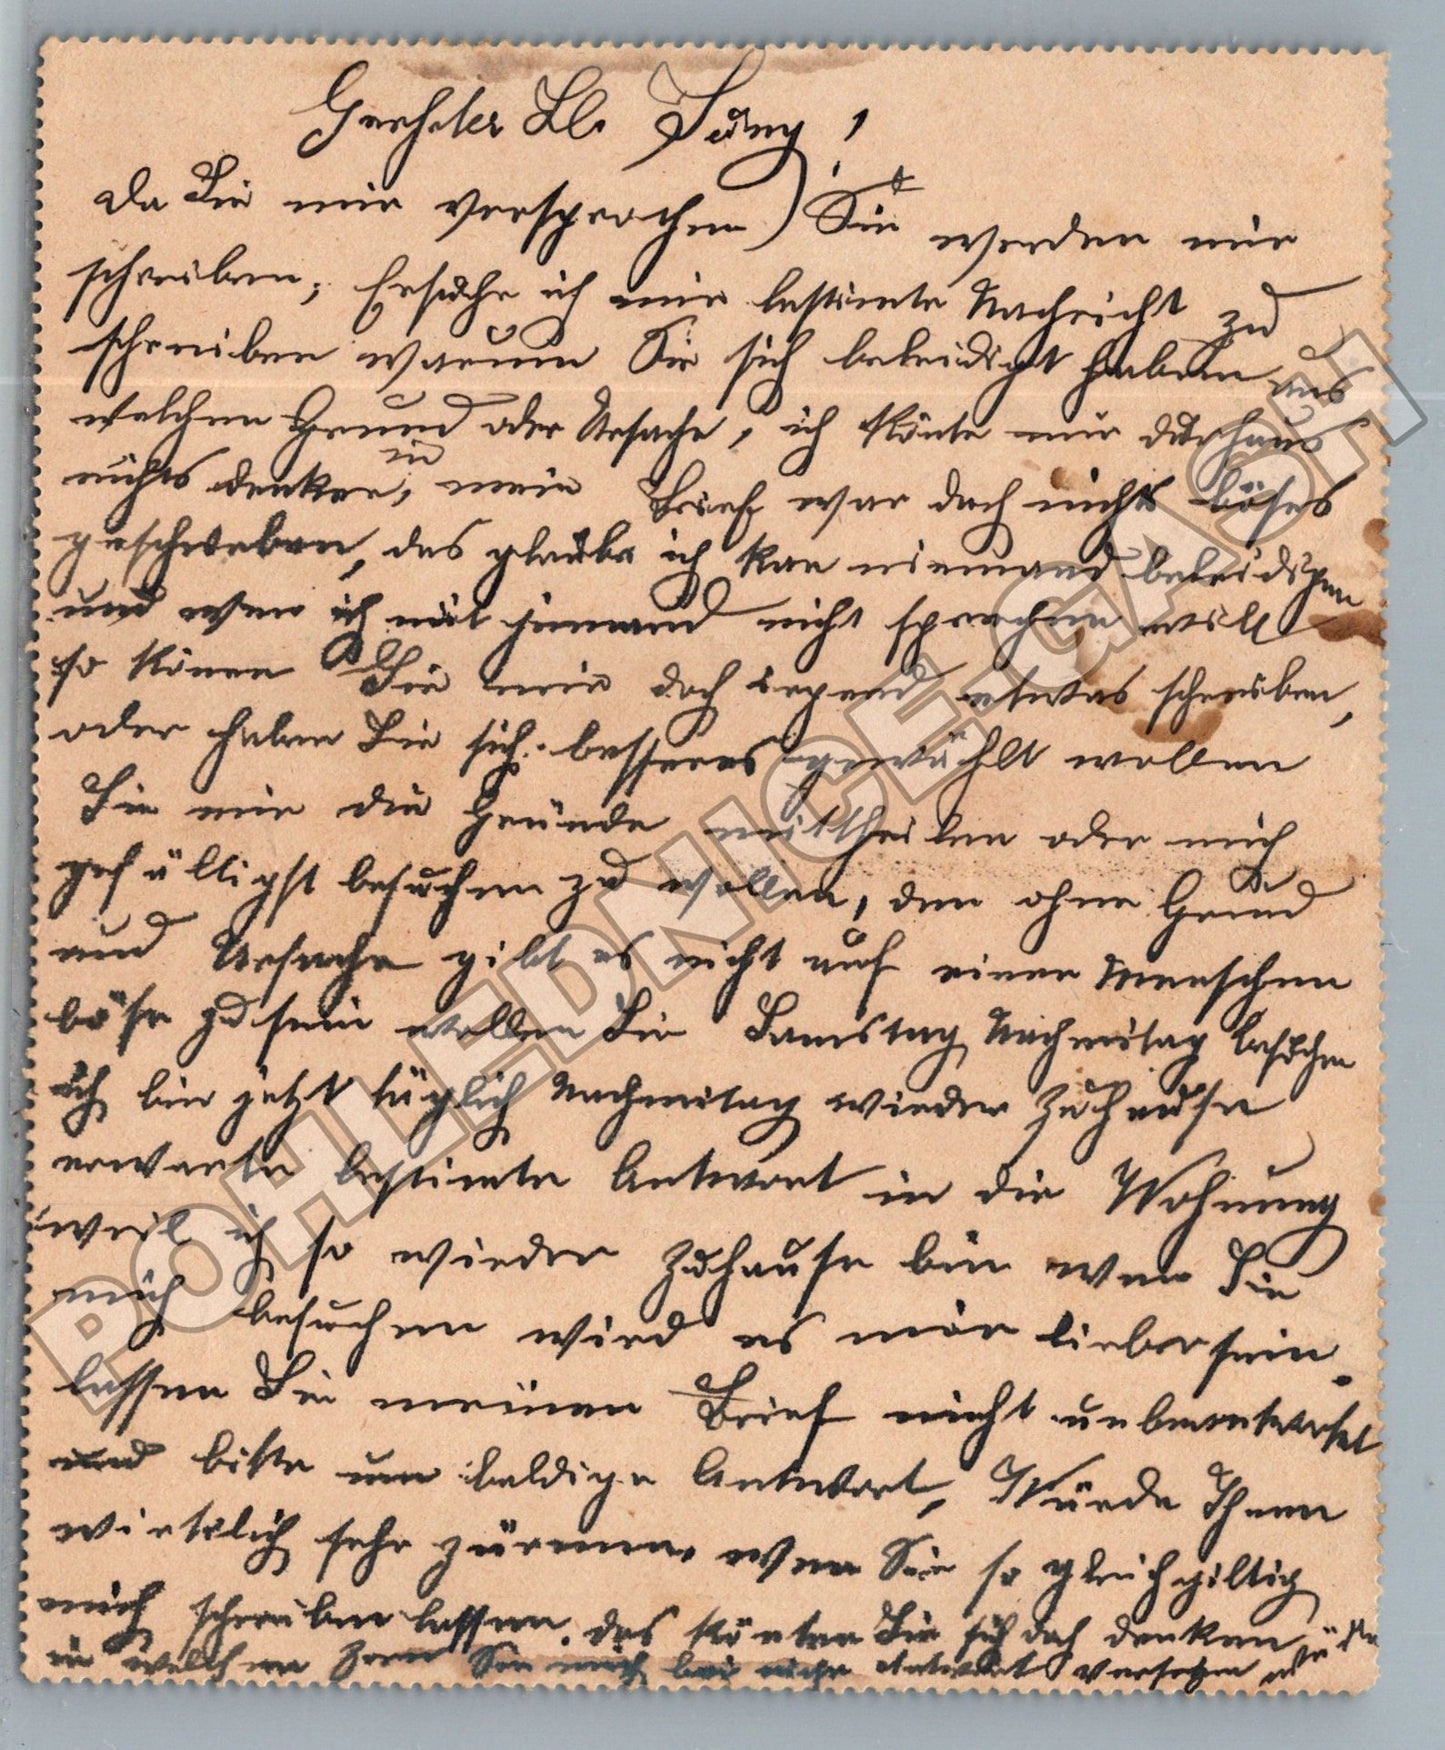 Geehrter Hl. Jung!
Da Sie mir versprochen, Sie werden mir
schreiben, Ersuche ich mir bestimte Nachricht zu
schreiben warum Sie sich beleidigt haben aus
welchen Grund oder Ursache, ich könte mir durhaus
nichts denken, in mein Brief war doch nichts böses
geschrieben, das glaube ich kan niemand beleidigen
und wen ich mit jemand nicht sprechen will
so könen Sie mir doch irgend etwas schreiben,
oder haben Sie sich besseres gewählt wollen
Sie mir die Gründe mittheilen oder mich
gefälligst besuchen zu wollen, den ohne Grund
und Ursache gibt es nicht auf einen Menschen
böse zu sein wollen Sie Samstag Nachmitag besuchen
ich bin jetzt täglich Nachmitag wieder Zuhause
erwarte bestimte Antwort in die Wohnung
weil ich so wieder Zuhause bin wen Sie
mich besuchen wird es mir lieber sein.
lassen Sie meinen Brief nicht unbeantwortet
und bitte um baldige Antwort, Würde Ihnen
wirklich sehr zürnen, wen Sie so gleichgiltig
mich schreiben lassen. das könten Sie sich doch denken
in welchen Zorn Sie mich bei nicht Antwort versetzen würden
POHLEDNICE.GASH